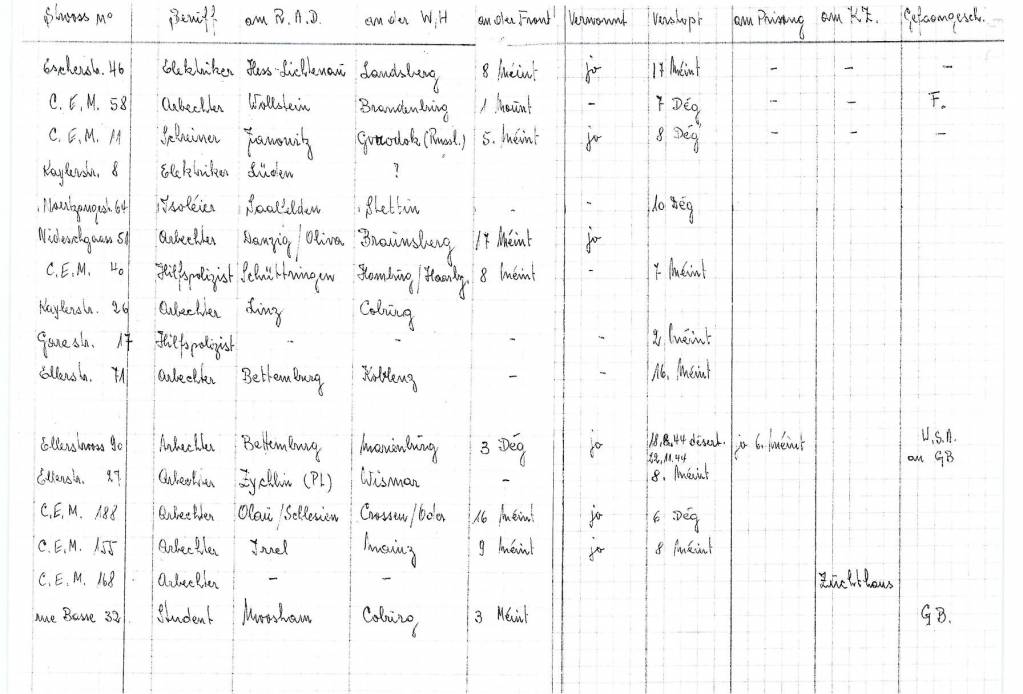 Strooss No Beruff am R.A.D. an der W.H an der Front Verwonnt Verstopt am Prisong am K.Z. Gefaangesch.
Escherstr. 46 Elektriker Hess-Lichtenau Landsberg 8 Méint jo 17 Méint - - -
C.E.M. 58 Arbechter Wollstein Brandenburg 1 Mount - 7 Dég - - F.
C.E.M. 11 Schreiner Janowitz (Russl.) 5. Méint jo 8 Dég - - -
Kaylerstr. 8 Elektriker Lüden ?
64 Isoléier Saalfelden Stettin - - 10 Dég
51 Arbechter Danzig/Oliva Braunsberg 17 Méint jo
C.E.M. 40 Hilfspolizist Schüttringen Homburg/ 8 Méint - 7 Méint
Kaylerstr. 26 Arbechter Linz Coburg
Garestr. 17 Hilfspolizist - - - - 2. Méint
Ellerstr. 71 Arbechter Bettemburg Koblenz - - 16. Méint
Ellerstrooss 90 Arbechter Bettemburg Marienburg 3 Dég jo 18.8.44 désert. jo 6. Méint U.S.A.
22.11.44 an GB
Ellerstr. 27 Arbechter Zychlin (Pl) Wismar - 8. Méint
C.E.M. 188 Arbechter Olau/Schlesien Crossen/Oder 16 Méint jo 6 Dég
C.E.M. 155 Arbechter Irrel Mainz 9 Méint jo 8 Méint
C.E.M. 168 Arbechter - - Zuchthaus
rue Basse 32 Student Moosham Coburg 3 Méint GB.